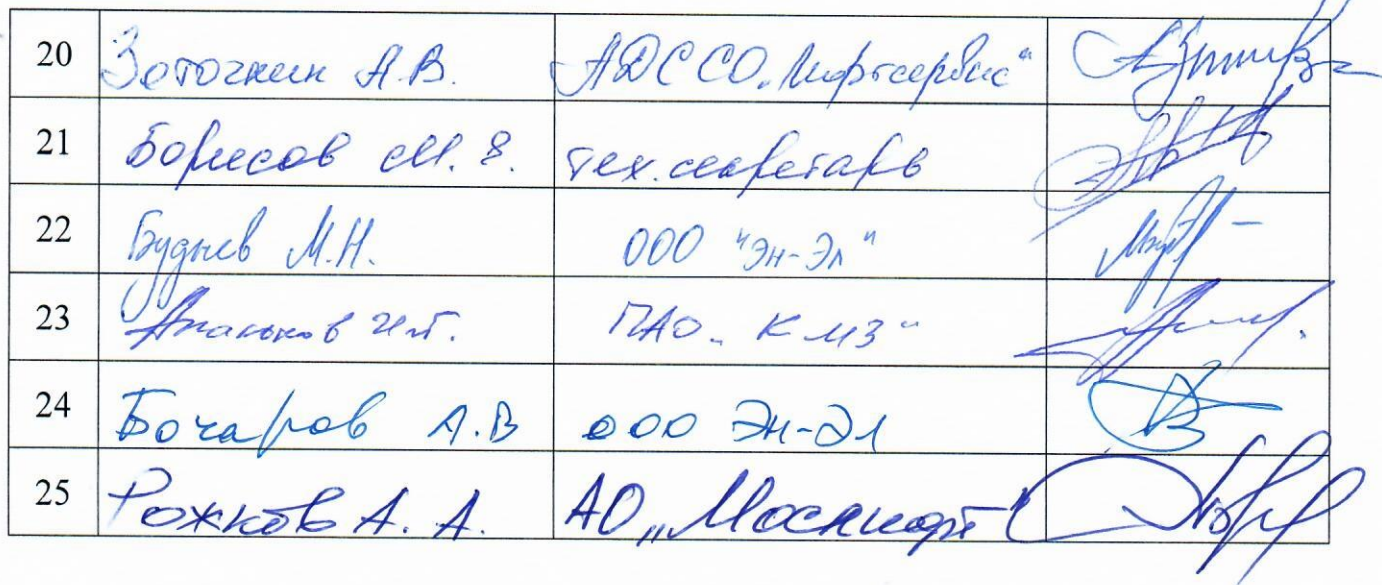 20 Заточкин А.В. АДС СО "Лифтсервис"
21 Борисов М.Е. тех. секретарь
22 Буднев М.Н. ООО "Эн-Эл"
23 Ананьков И.Т. ПАО "КМЗ"
24 Бочаров А.В ООО Эн-Эл
25 Рожков А.А. АО „Мослифт"